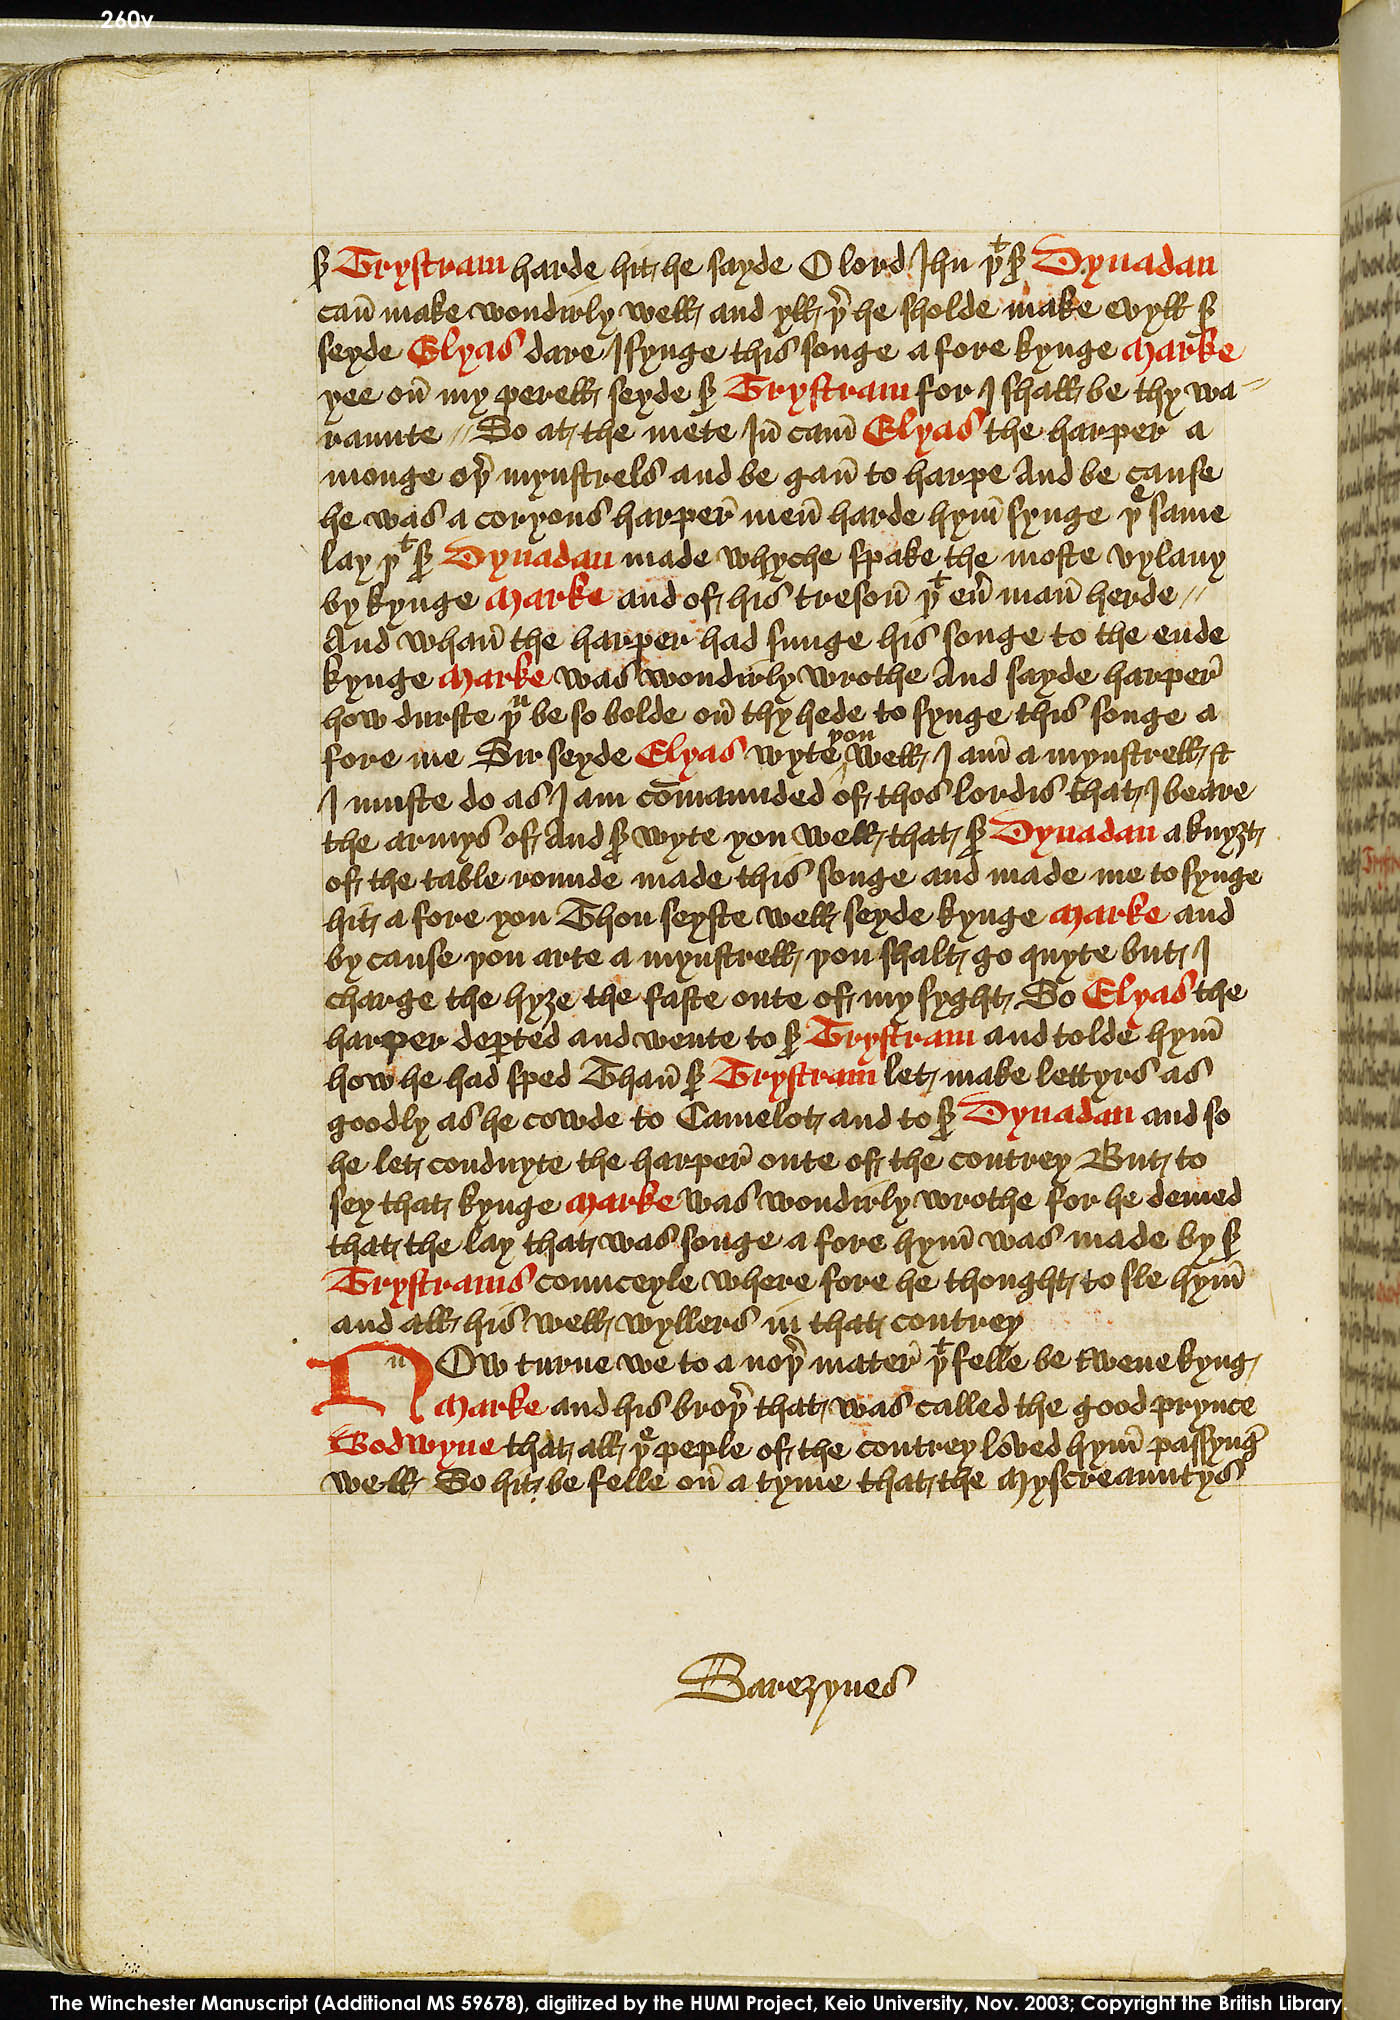 260v
sͬ Trystram harde hit he sayde O lord Ihu þᵗ sͬ Dynadan
can̄ make wondirly well and yll þ̾ he sholde make evyll sͬ
seyde Elyas dare I synge this songe a fore kynge Marke
yee on̄ my perell seyde sͬ Trystram for I shall be thy wa⸗
raunte // So at the mete In̄ cam̄ Elyas the harper a
monge oþ̾ mynstrels and be gan̄ to harpe And be cause
he was a coryous harper̾ men̄ harde hym̄ synge þᵉ same
lay þᵗ sͬ Dynadan made whyche spake the moste vylany
by kynge Marke and of his treson̄ þᵗ eu̾ man̄ herde //
And whan̄ the harper had sunge his songe to the ende
kynge Marke was wondirly wrothe And sayde harper̾
how durste þᵘ be so bolde on̄ thy hede to synge this songe a
fore me Sir seyde Elyas wyte you well I am̄ a mynstrell &
I muste do as I am com̄aunded of thos lordis that I beare
the armys of And sͬ wyte you well that sͬ Dynadan a knyȝt
of the table rounde made this songe and made me to synge
hit a fore you Thou seyste well seyde kynge Marke and
by cause þou arte a mynstrell þou shalt go quyte but I
charge the hyȝe the faste oute of my syght So Elyas the
harper deꝑted and wente to sͬ Trystram and tolde hym̄
how he had sped Than̄ sͬ Trystram let make lettyrs as
goodly as he cowde to Camelot and to sͬ Dynadan and so
he let conduyte the harper̾ oute of the contrey But to
sey that kynge Marke was wondirly wrothe for he demed
that the lay that was songe a fore hym̄ was made by sͬ
Trystrams counceyle where fore he thought to sle hym̄
and all his well wyllers in that contrey
NOw turne we to a noþ̾ mater̾ þᵗ felle be twene kyng
Marke and his broþ̾ that was called the good prynce
Bodwyne that all þᵉ peple of the contrey loved hym̄ passyng̾
well So hit be felle on̄ a tyme that the Myscreauntys
Sareȝynes
The Winchester Manuscript (Additional MS 59678), digitized by the HUMI Project, Keio University, Nov. 2003; Copyright the British Library.